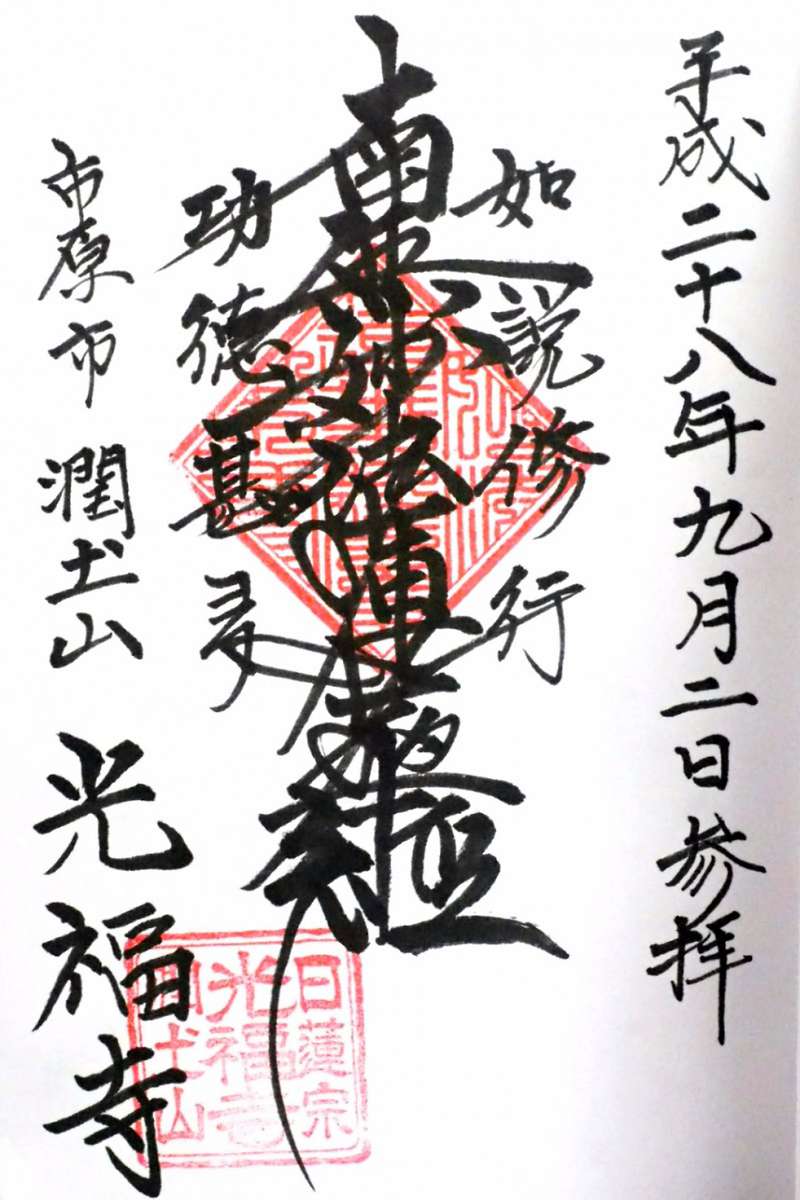 平成二十八年九月二日参拝
如説修行
南無妙法蓮華経
功徳甚多
市原市 潤𡈽山 光福寺
日蓮宗
光福寺
潤土山